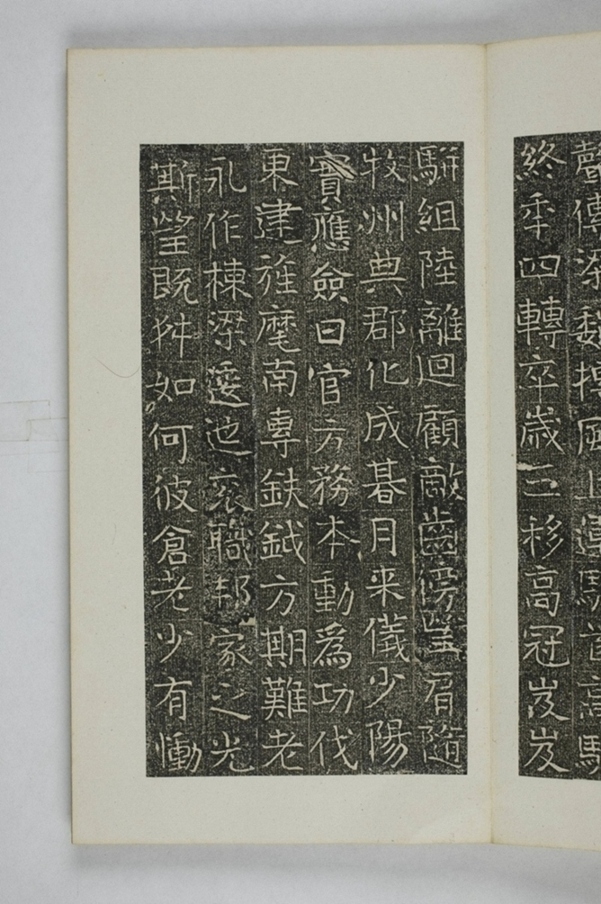 傳梁魏摶風上運首高
終秊四轉卒歲三移高冠岌岌
騈組陸離迴顧敵齒傍望肩隨
牧州典郡化成朞月来儀少陽
實應僉曰官方務本動爲功伐
東建旌麾南專鈇鉞方期難老
永作棟梁逶迤衮職邦家之光
斯望既舛如何彼倉老少有慟